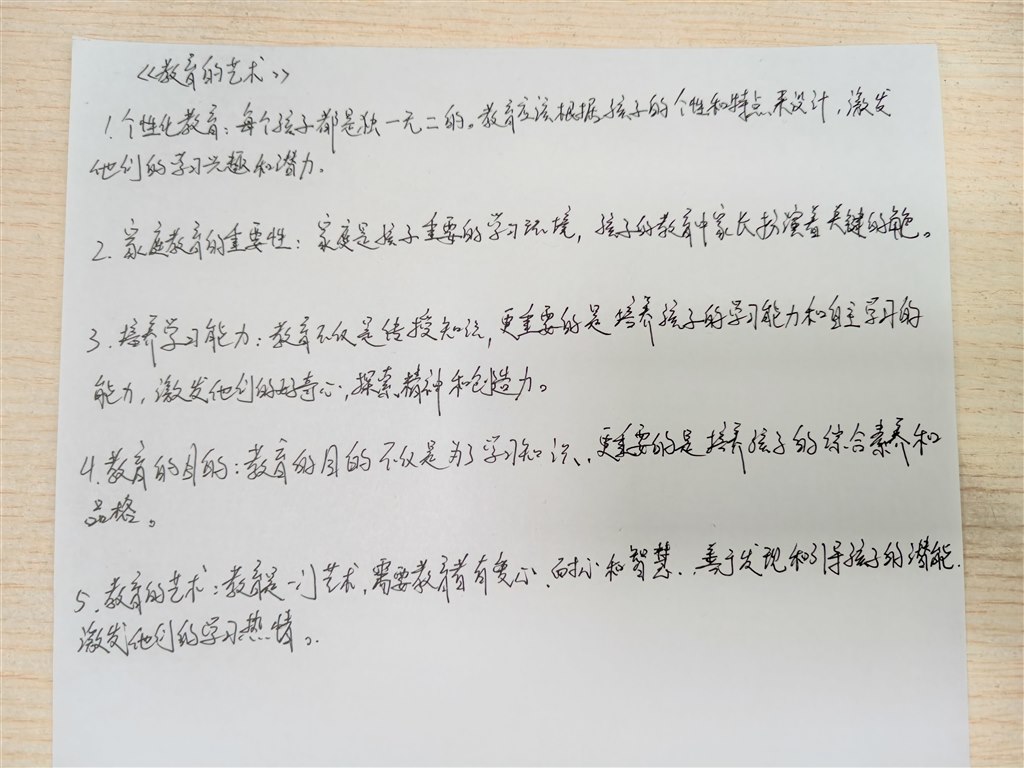 《教育的艺术》
1.个性化教育：每个孩子都是独一无二的。教育应该根据孩子的个性和特点来设计，激发
他们的学习兴趣和潜力。
2.家庭教育的重要性：家庭是孩子重要的学习环境，孩子的教育中家长扮演着关键的角色。
3.培养学习能力：教育不仅是传授知识，更重要的是培养孩子的学习能力和自主学习的
能力，激发他们的好奇心，探索精神和创造力。
4.教育的目的：教育的目的不仅是为了学习知识、更重要的是培养孩子的综合素养和
品格。
5.教育的艺术：教育是一门艺术，需要教育者有爱心、耐心和智慧.善于发现和引导孩子的潜能.
激发他们的学习热情。